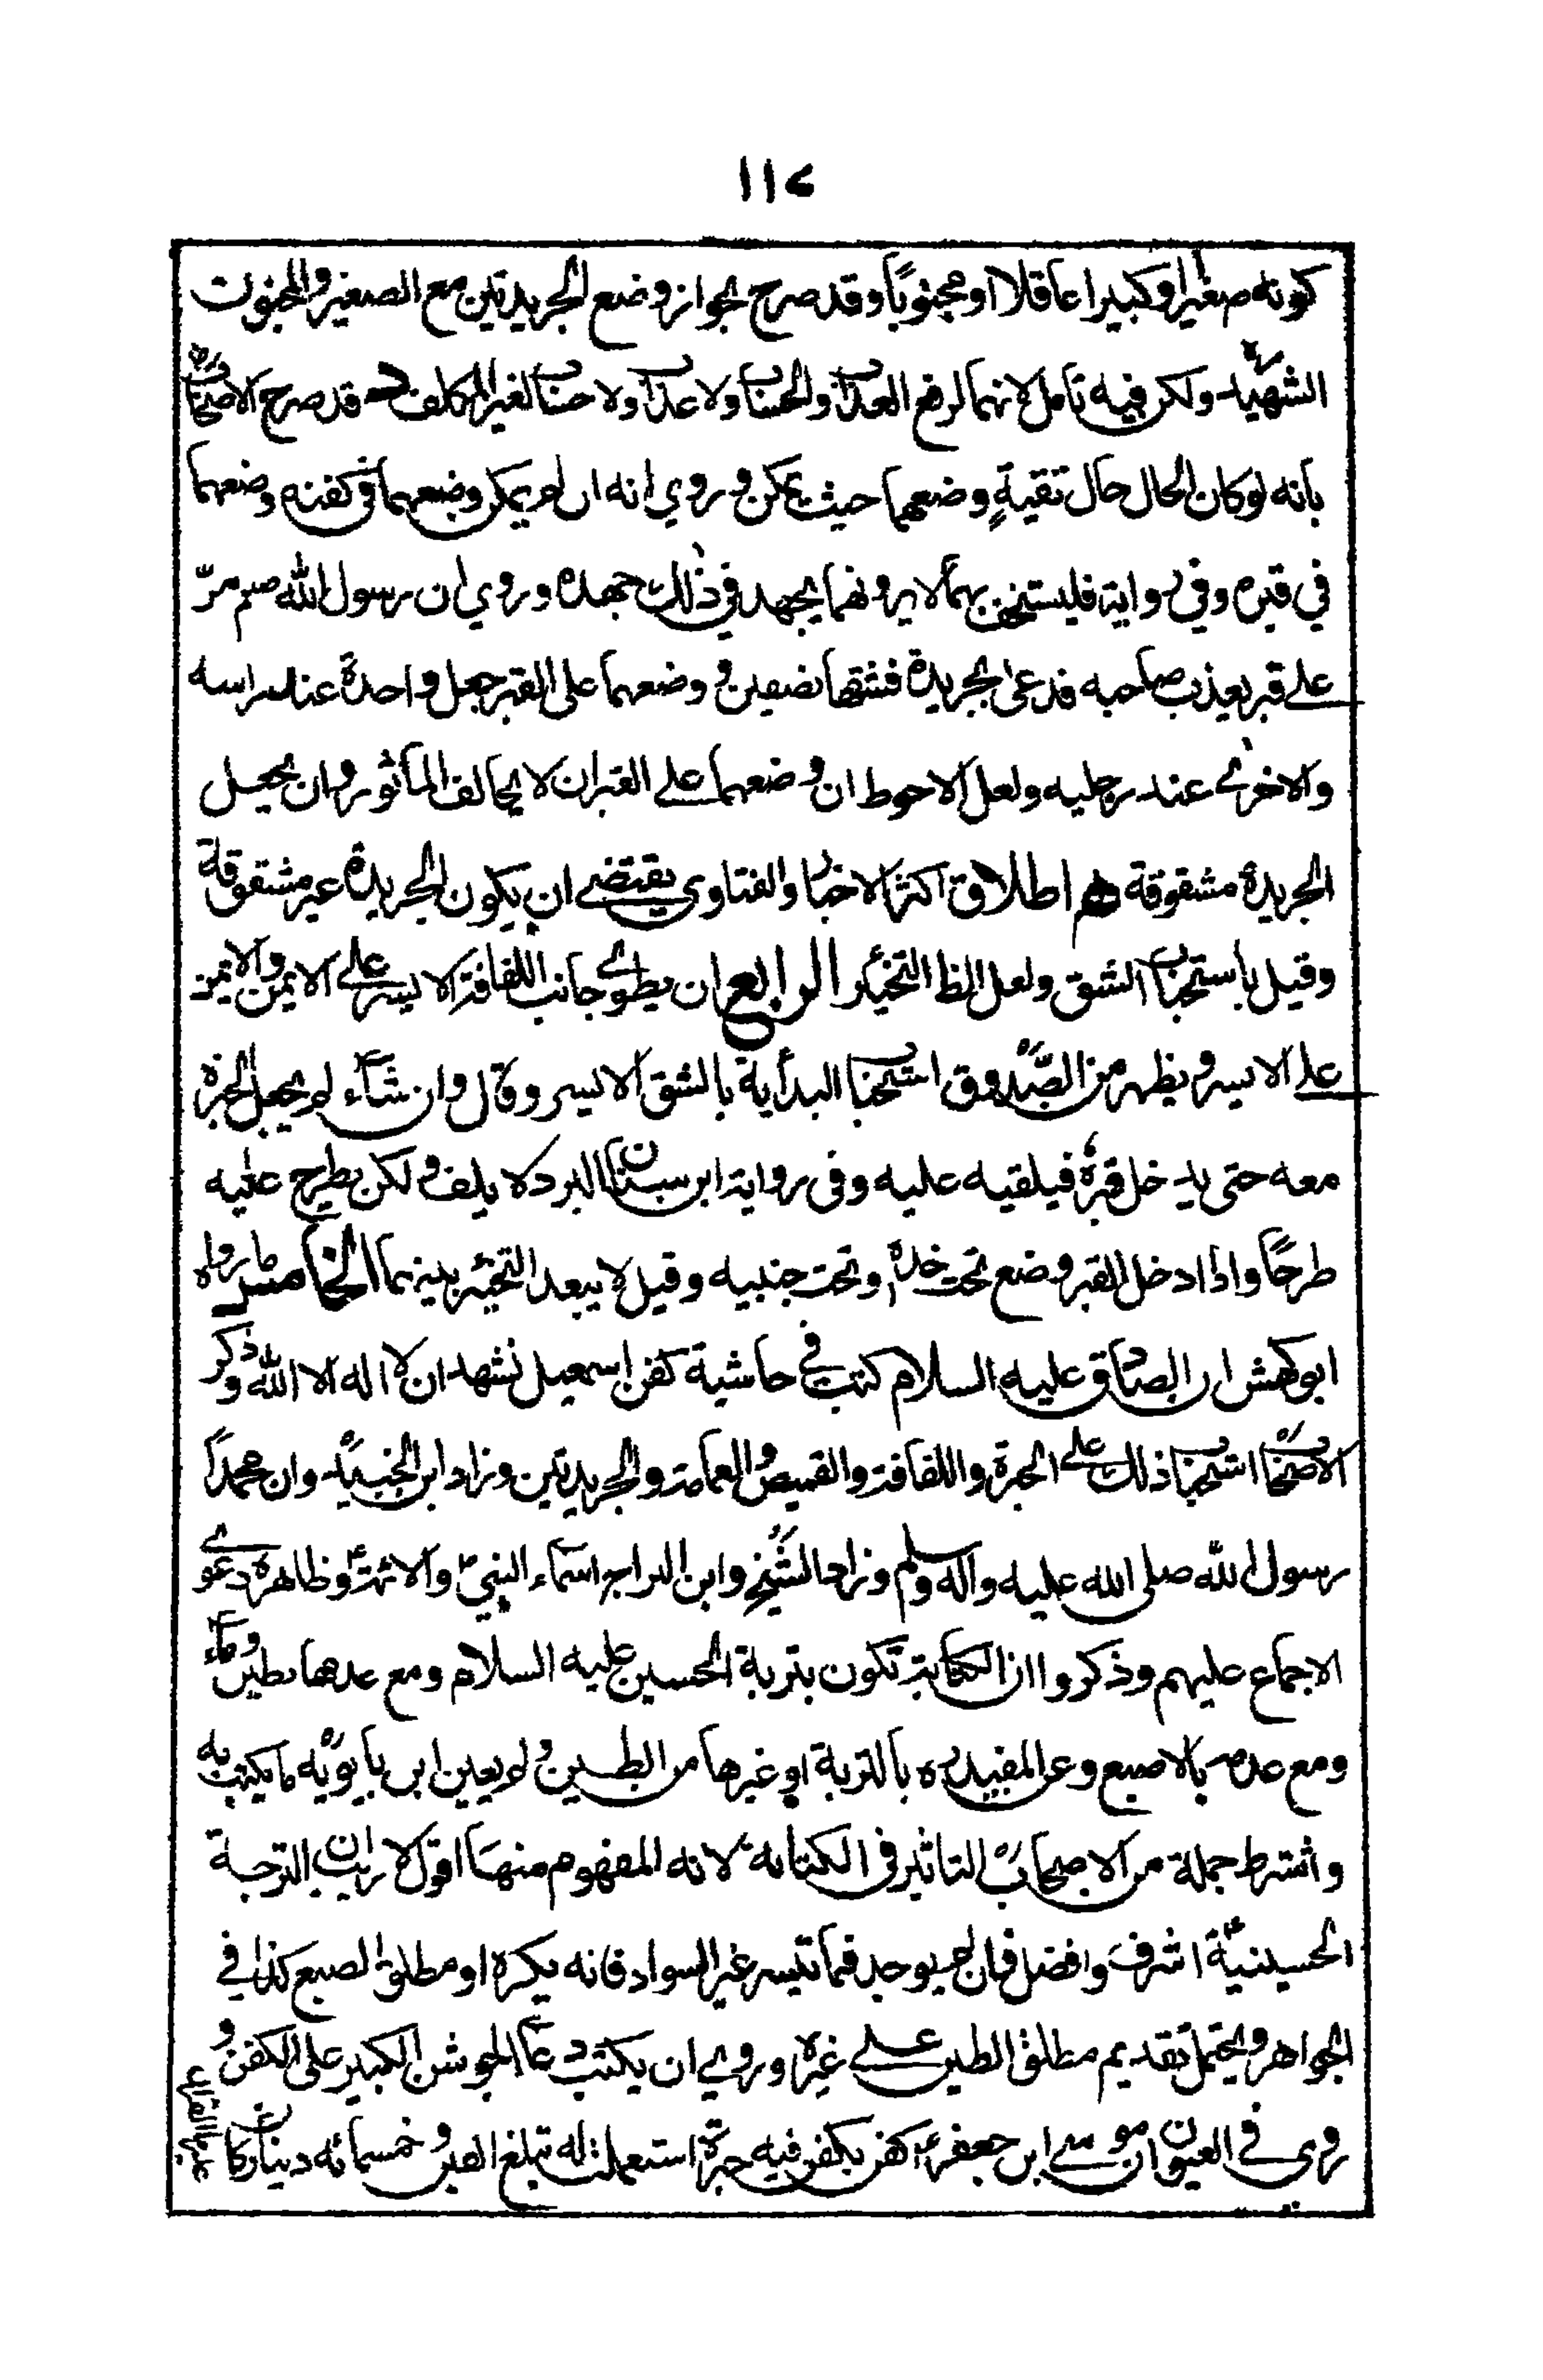 ١١٧
كونه صغيرا وكبيرا عاقلا او مجنونًا وقد صرح بجواز وضع الجريدتين مع الصغير والمجنون
الشهيد ره ولكن فيه تامل لانهما لرفع العذاب والحساب ولا عذاب ولا حساب لغير المكلف وقد صرح الاصحاب ره
بانه لو كان الحال حال تقيةٍ وضعهما حيث يمكن وروي انه ان لم يمكن وضعهما في كفنه وضعهما
في قبره وفي رواية فليستخف بهما لا يرونهما يجهد في ذلك جهده وروي ان رسول الله صلم مرّ
على قبر يعذب صاحبه فدعى بجريدة فشقها نصفين ووضعهما على القبر جعل واحدة عند راسه
والاخرى عند رجليه ولعل الاحوط ان وضعهما على القبر ان لا يخالف الماثور وان يجعل
الجريدة مشقوقة اطلاق اكثر الاخبار والفتاوى يقتضي ان يكون الجريدة غير مشقوقة
وقيل باستحباب الشق ولعل الظ التخيير الرابع ان يطوي جانب اللفافة الايسر على الايمن والايمن
على الايسر ويظهر من الصّدوق استحباب البدأية بالشق الايسر وقال وان شاء لم يجعل الحبرة
معه حتى يدخل قبره فيلقيه عليه وفي رواية ابن سنان البرد لا يلف ولكن يطرح عليه
طرحًا واذا ادخل القبر وضع تحت خده وتحت جنبيه وقيل لا يبعد التخيير بينهما الخامس ما رواه
ابو كهمش ان الصادق عليه السلام كتب في حاشية كفن اسمعيل نشهد ان لا اله الا الله وذكر
الاصحاب ره استحباب ذلك على الحبرة واللفافة والقميص والعمامة والجريدتين وزاد ابن الجنيد وان محمداً
رسول الله صلى الله عليه واله وسلم وزاد الشيخ ره وابن البراج اسماء النبيّ ص والائمة ع وظاهره دعوى
الاجماع عليهم وذكروا ان الكتابة تكون بتربة الحسين عليه السلام ومع عدمها بطين وماء
ومع عدمه بالاصبع وعن المفيد ره بالتربة او غيرها من الطين ولم يعين ابن بابويه ره ما يكتب به
واشترط جملة من الاصحاب ره التاثير في الكتابة لانه المفهوم منها اقول لا ريب ان التربة
الحسينيّة ع اشرف وافضل فان لم يوجد فما تيسر غير السواد فانه يكره او مطلق الصبع كذا في
الجواهر ويحتمل تقديم مطلق الطين على غيره وروي ان يكتب دعاء الجوشن الكبير على الكفن و
روى في العيون ان موسى ابن جعفر ع كفن بكفن فيه حبرة استعملت له تبلغ الفين وخمسمائه دينار كان